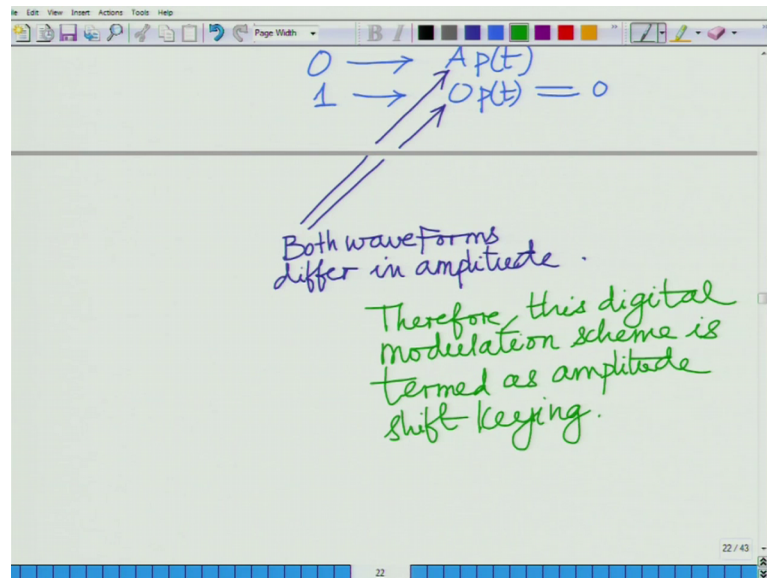 le Edit View Insert Actions Tools Help
Page Width B I
0 → A p(t)
1 → 0 p(t) = 0
Both waveforms
differ in amplitude.
Therefore, this digital
modulation scheme is
termed as amplitude
shift keying.
22 / 43
22